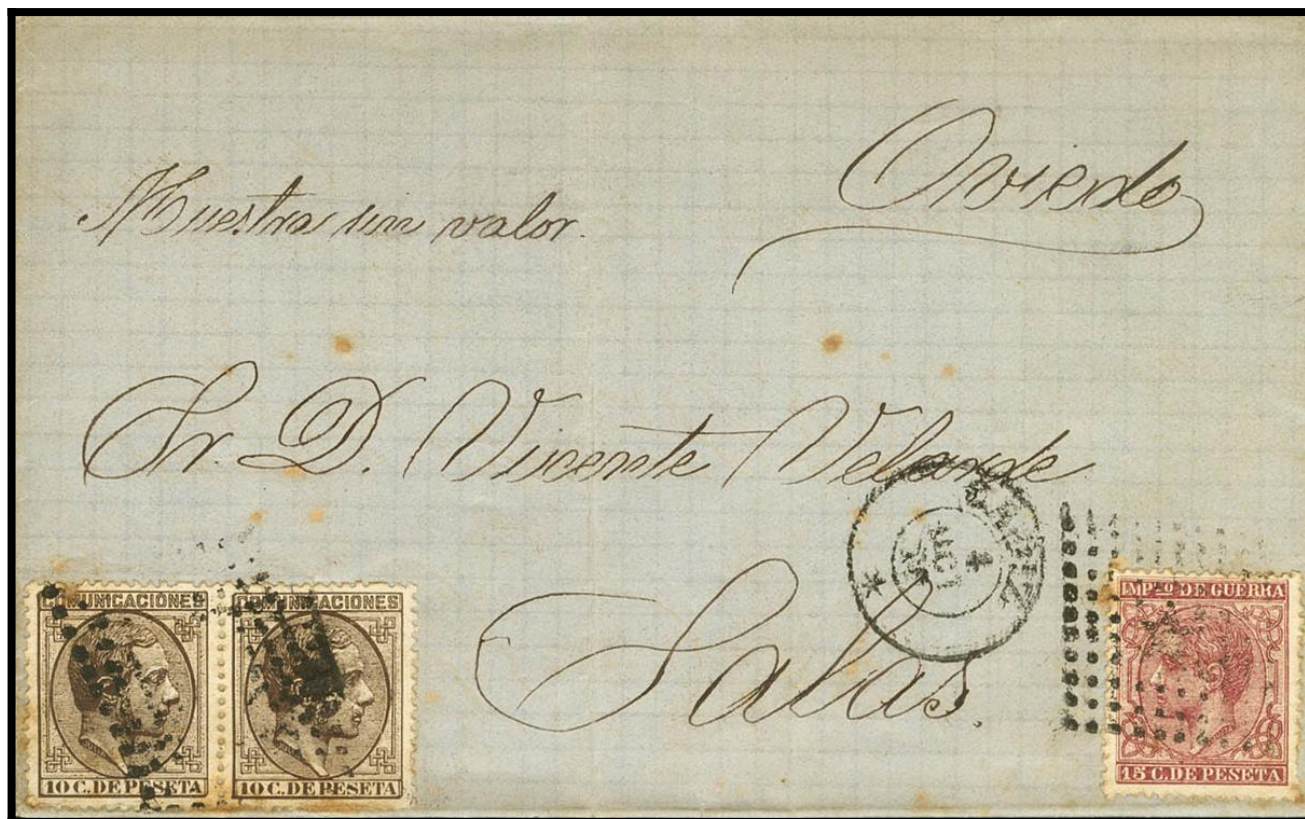 Oviedo
Muestra sin valor.
Sr. D. Vicente Velarde
Salas.
CADIZ
4
COMUNICACIONES
10 C. DE PESETA
COMUNICACIONES
10 C. DE PESETA
IMPTO DE GUERRA
15 C. DE PESETA